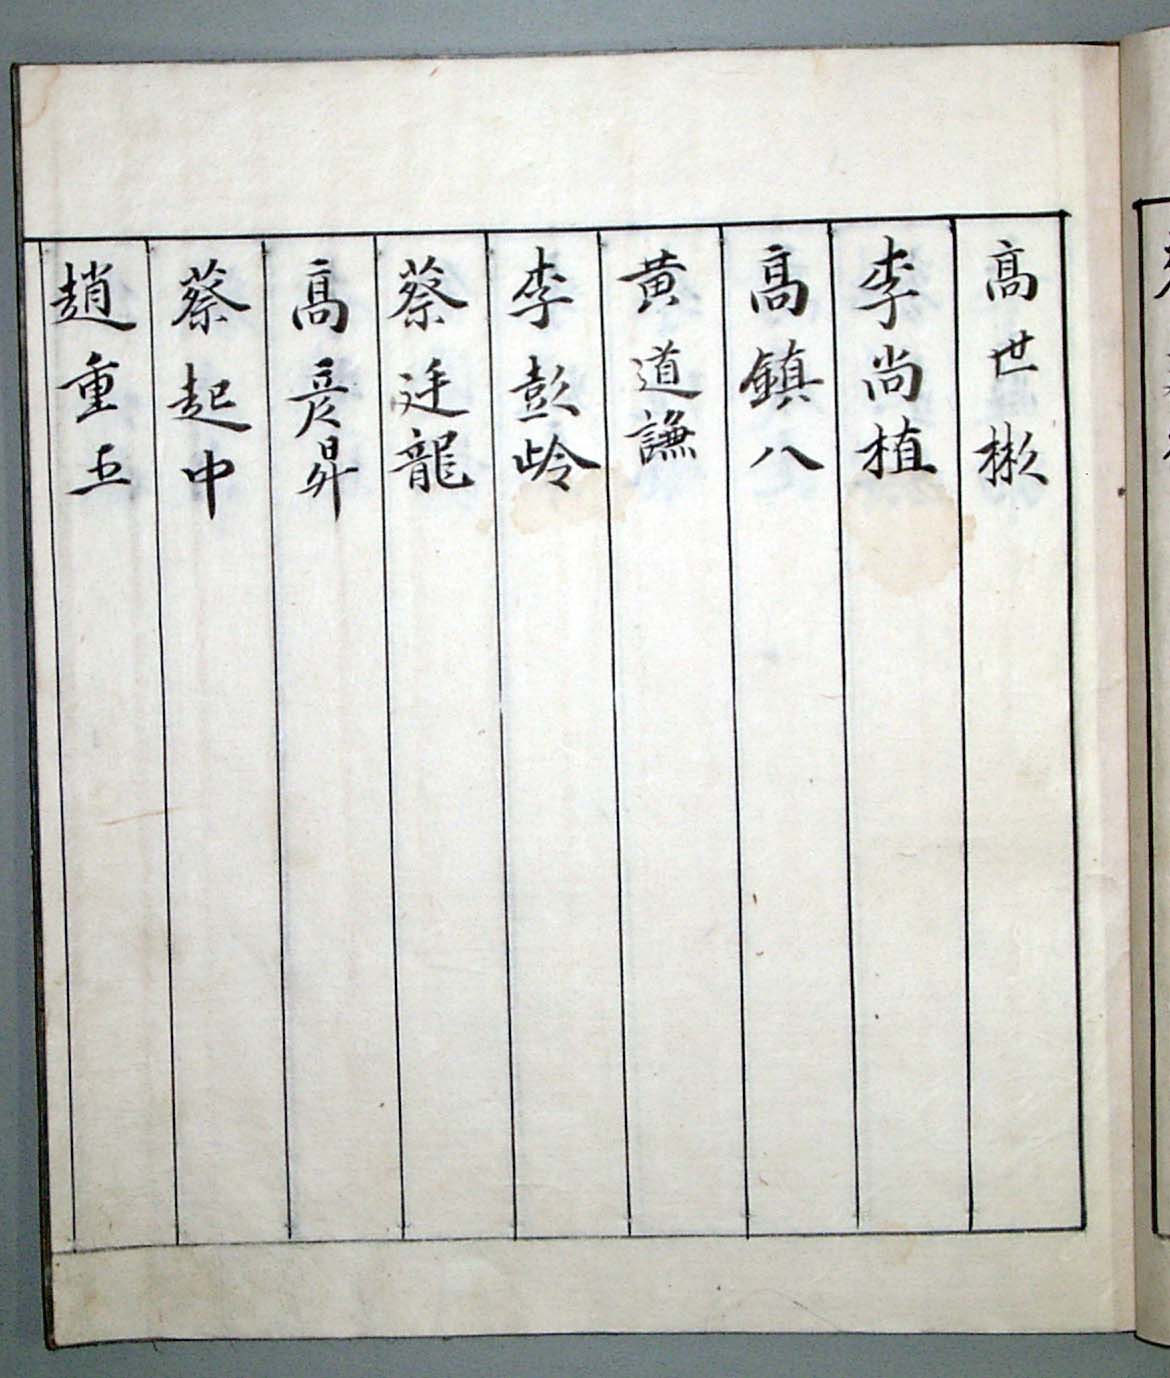 高世
李尚植
高鎮八
黃道謙
李彭齡
蔡廷龍
高彦昇
蔡起中
趙重五